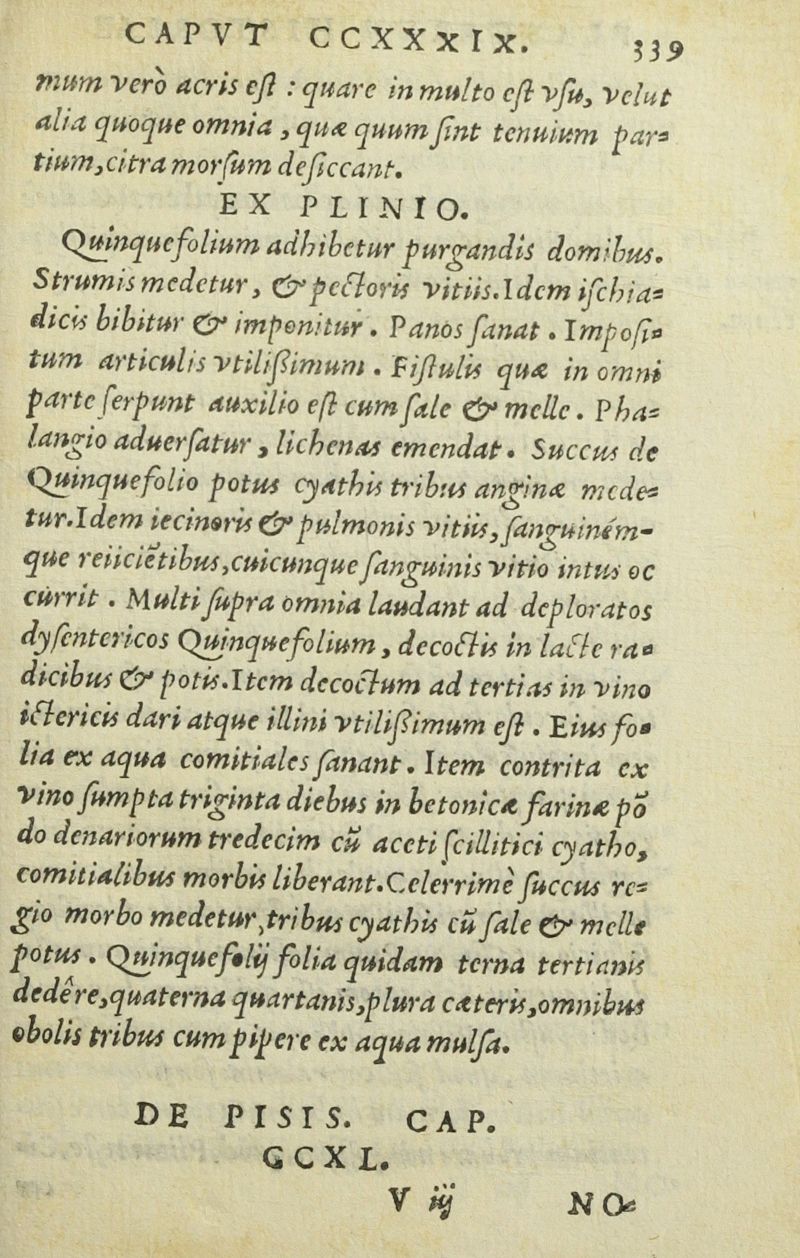 CAPVT CCXXXIX. 339
mum verò acris eſt : quare in multo eſt vſu, velut
alia quoque omnia , quæ quum ſint tenuium par=
tium,citra morſum deſiccant.
EX PLINIO.
Quinquefolium adhibetur purgandis domibus.
Strumis medetur, & pectoris vitiis.Idem iſchia=
dicis bibitur & imponitur. Panos ſanat. Impoſi=
tum articulis vtiliſsimum. Fiſtulis quæ in omni
parte ſerpunt auxilio eſt cum ſale & melle. Pha=
langio aduerſatur, lichenas emendat. Succus de
Quinquefolio potus cyathis tribus anginæ mede=
tur.Idem iecinoris & pulmonis vitiis, ſanguiném-
que reiiciẽtibus,cuicunque ſanguinis vitio intus oc
currit. Multi ſupra omnia laudant ad deploratos
dyſentericos Quinquefolium, decoctis in lacte ra=
dicibus & potis.Item decoctum ad tertias in vino
ictericis dari atque illini vtiliſsimum eſt. Eius fo=
lia ex aqua comitiales ſanant. Item contrita ex
vino ſumpta triginta diebus in betonicæ farinæ põ
do denariorum tredecim cũ aceti ſcillitici cyatho,
comitialibus morbis liberant.Celerrimè ſuccus re=
gio morbo medetur,tribus cyathis cũ ſale & melle
potus. Quinquefolij folia quidam terna tertianis
dedêre,quaterna quartanis,plura cæteris,omnibus
obolis tribus cum pipere ex aqua mulſa.
DE PISIS. CAP.
CCXL.
V iij NO=